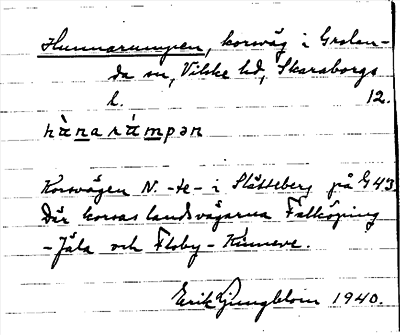 Hunnarumpen, korsväg i Grolan-
da sn, Vilske hd, Skaraborgs
l. 12.
hùnarùmpən
Korsvägen N. -te- i Slätteberg på G43.
Där korsas landsvägarna Falköping
-Jäla och Floby-Kinneve.
Erik Ljungblom 1940.